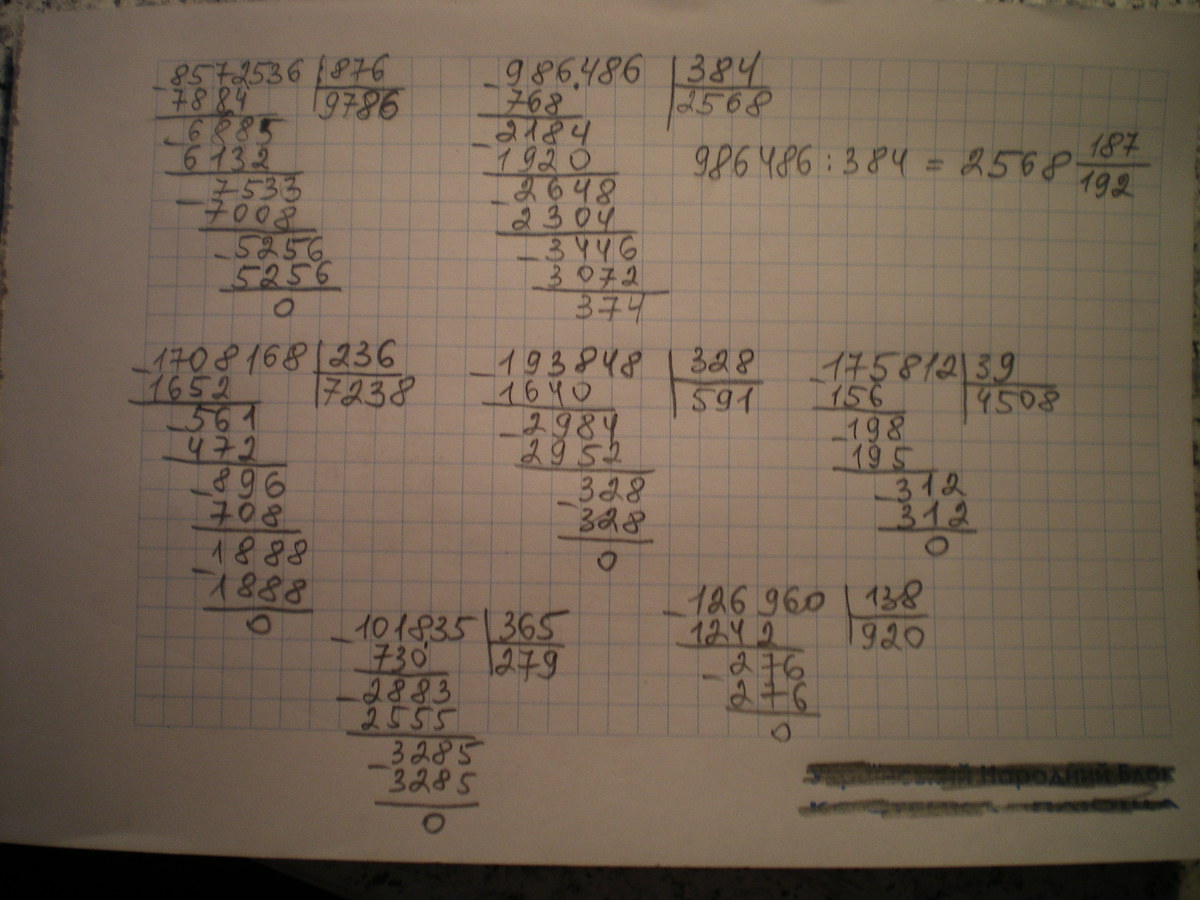 -8572536 | 876
7884 | 9786
-6885
6132
-7533
7008
-5256
5256
0
-986.486 | 384
768 | 2568
-2184
1920
-2648
2304
-3446
3072
374
986486 : 384 = 2568 187/192
-1708168 | 236
1652 | 7238
-561
472
-896
708
-1888
1888
0
-193848 | 328
1640 | 591
-2984
2952
-328
328
0
-175812 | 39
156 | 4508
-198
195
-312
312
0
-101835 | 365
730 | 279
-2883
2555
-3285
3285
0
-126960 | 138
1242 | 920
-276
276
0
Народний Блок